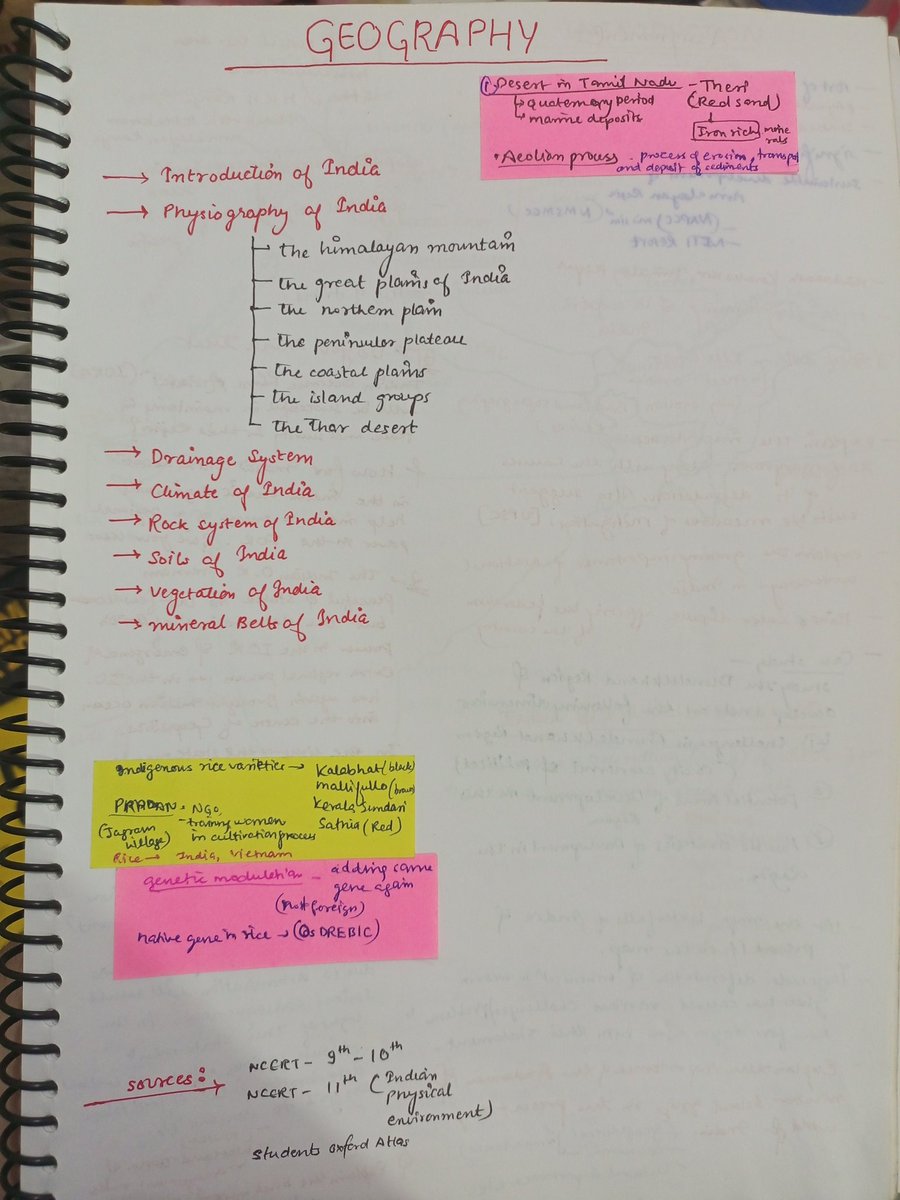 GEOGRAPHY
① Desert in Tamil Nadu - Theri
↳ quaternary period (Red sand)
↳ marine deposits
Iron rich minerals
• Aeolian process - process of erosion, transport
and deposit of sediments
→ Introduction of India
→ Physiography of India
the himalayan mountain
the great plains of India
the northern plain
the peninsular plateau
the coastal plains
the island groups
the Thar desert
→ Drainage System
→ Climate of India
→ Rock system of India
→ Soils of India
→ Vegetation of India
→ mineral Belts of India
Indigenous rice varieties → Kalabhat (black)
mallifullo (brown)
PRADAN - NGO, Kerala Sundari
(Jagram village) - training women Sathia (Red)
in cultivation process
Rice → India, Vietnam
genetic moduletion - adding same
gene again
(not foreign)
native gene in rice → (OsDREB1C)
sources: →
NCERT - 9th - 10th
NCERT - 11th (Indian
physical
environment)
Students Oxford Atlas